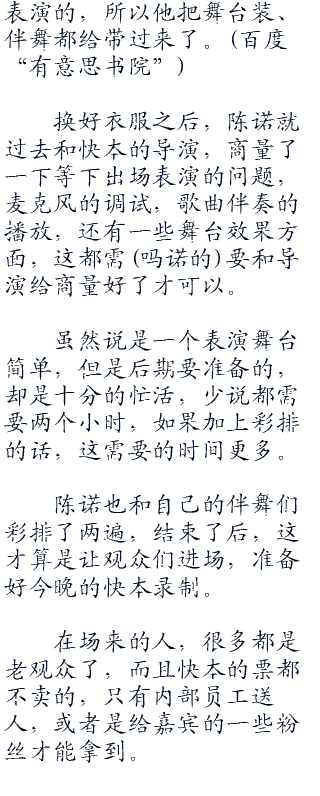 表演的，所以他把舞台装、
伴舞都给带过来了。(百度
“有意思书院”)
换好衣服之后，陈诺就
过去和快本的导演，商量了
一下等下出场表演的问题，
麦克风的调试，歌曲伴奏的
播放，还有一些舞台效果方
面，这都需(吗诺的)要和导
演给商量好了才可以。
虽然说是一个表演舞台
简单，但是后期要准备的，
却是十分的忙活，少说都需
要两个小时，如果加上彩排
的话，这需要的时间更多。
陈诺也和自己的伴舞们
彩排了两遍，结束了后，这
才算是让观众们进场，准备
好今晚的快本录制。
在场来的人，很多都是
老观众了，而且快本的票都
不卖的，只有内部员工送
人，或者是给嘉宾的一些粉
丝才能拿到。